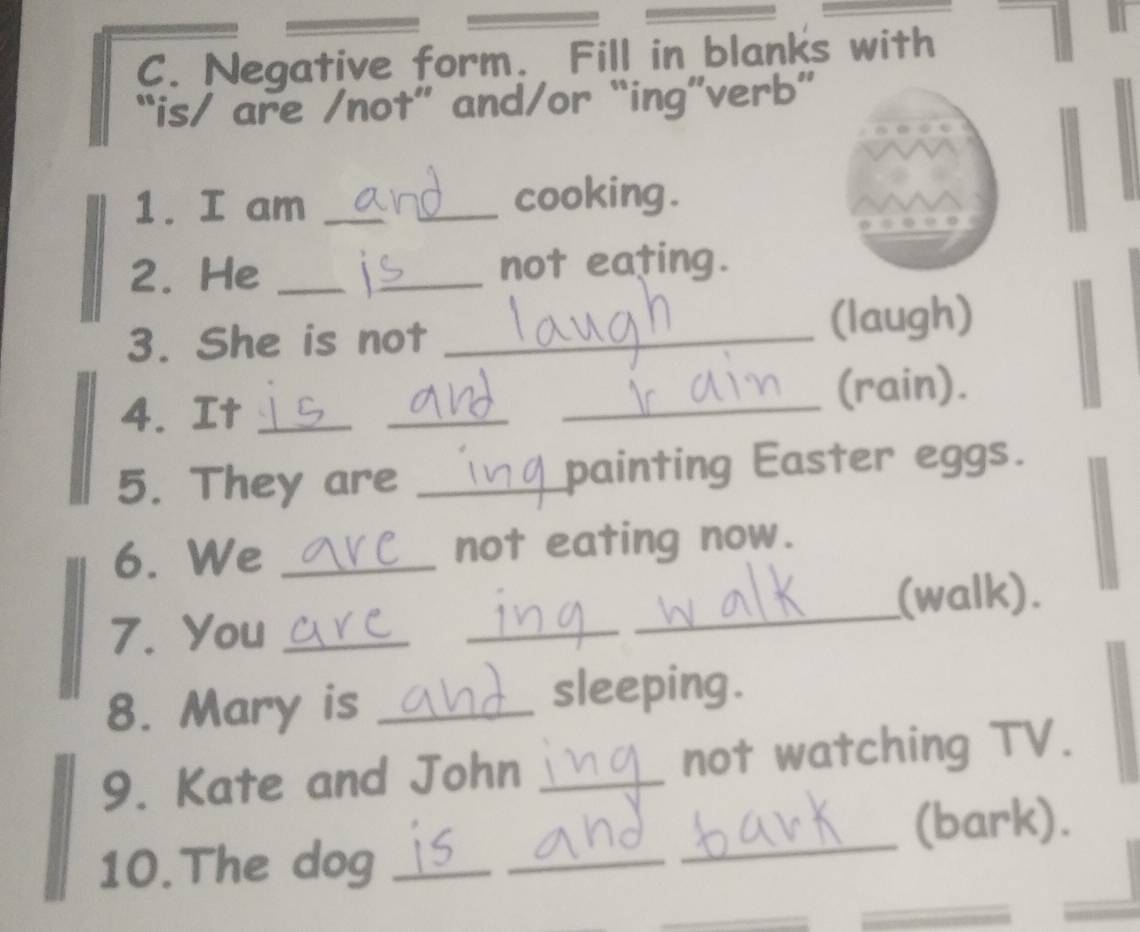 C. Negative form. Fill in blanks with
"is/ are /not" and/or "ing"verb"
1. I am and cooking.
2. He is not eating.
3. She is not laugh (laugh)
4. It is and rain (rain).
5. They are ing painting Easter eggs.
6. We are not eating now.
7. You are ing walk (walk).
8. Mary is and sleeping.
9. Kate and John ing not watching TV.
10. The dog is and bark (bark).